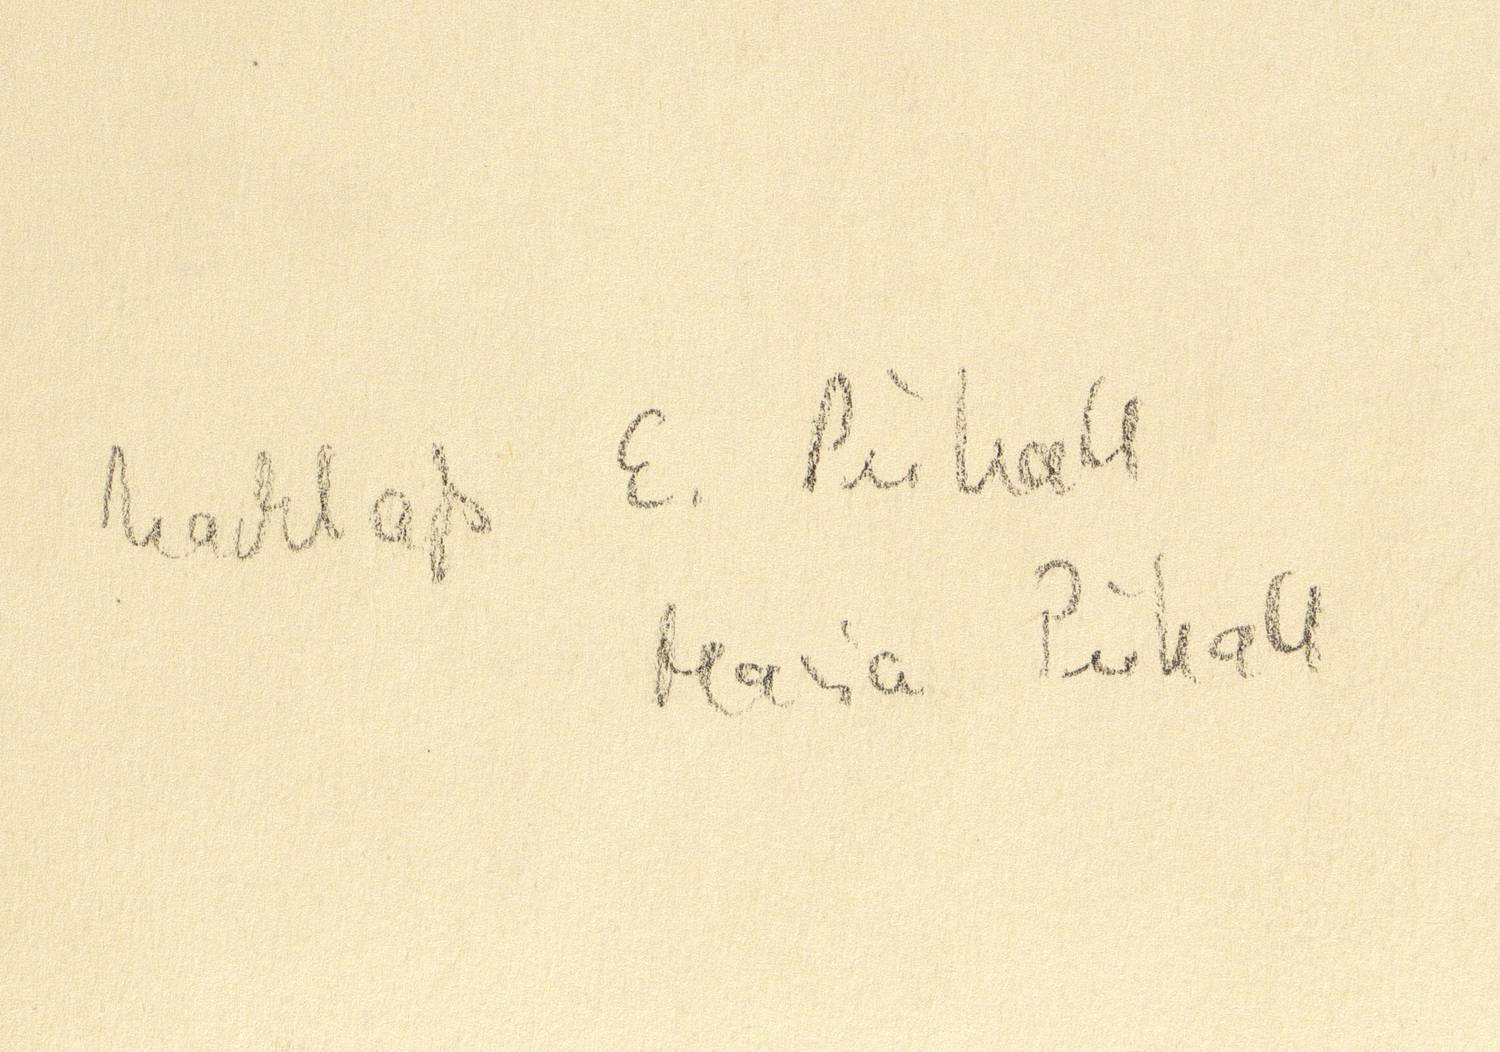 Nachlaß E. Pickall
Maria Pickall